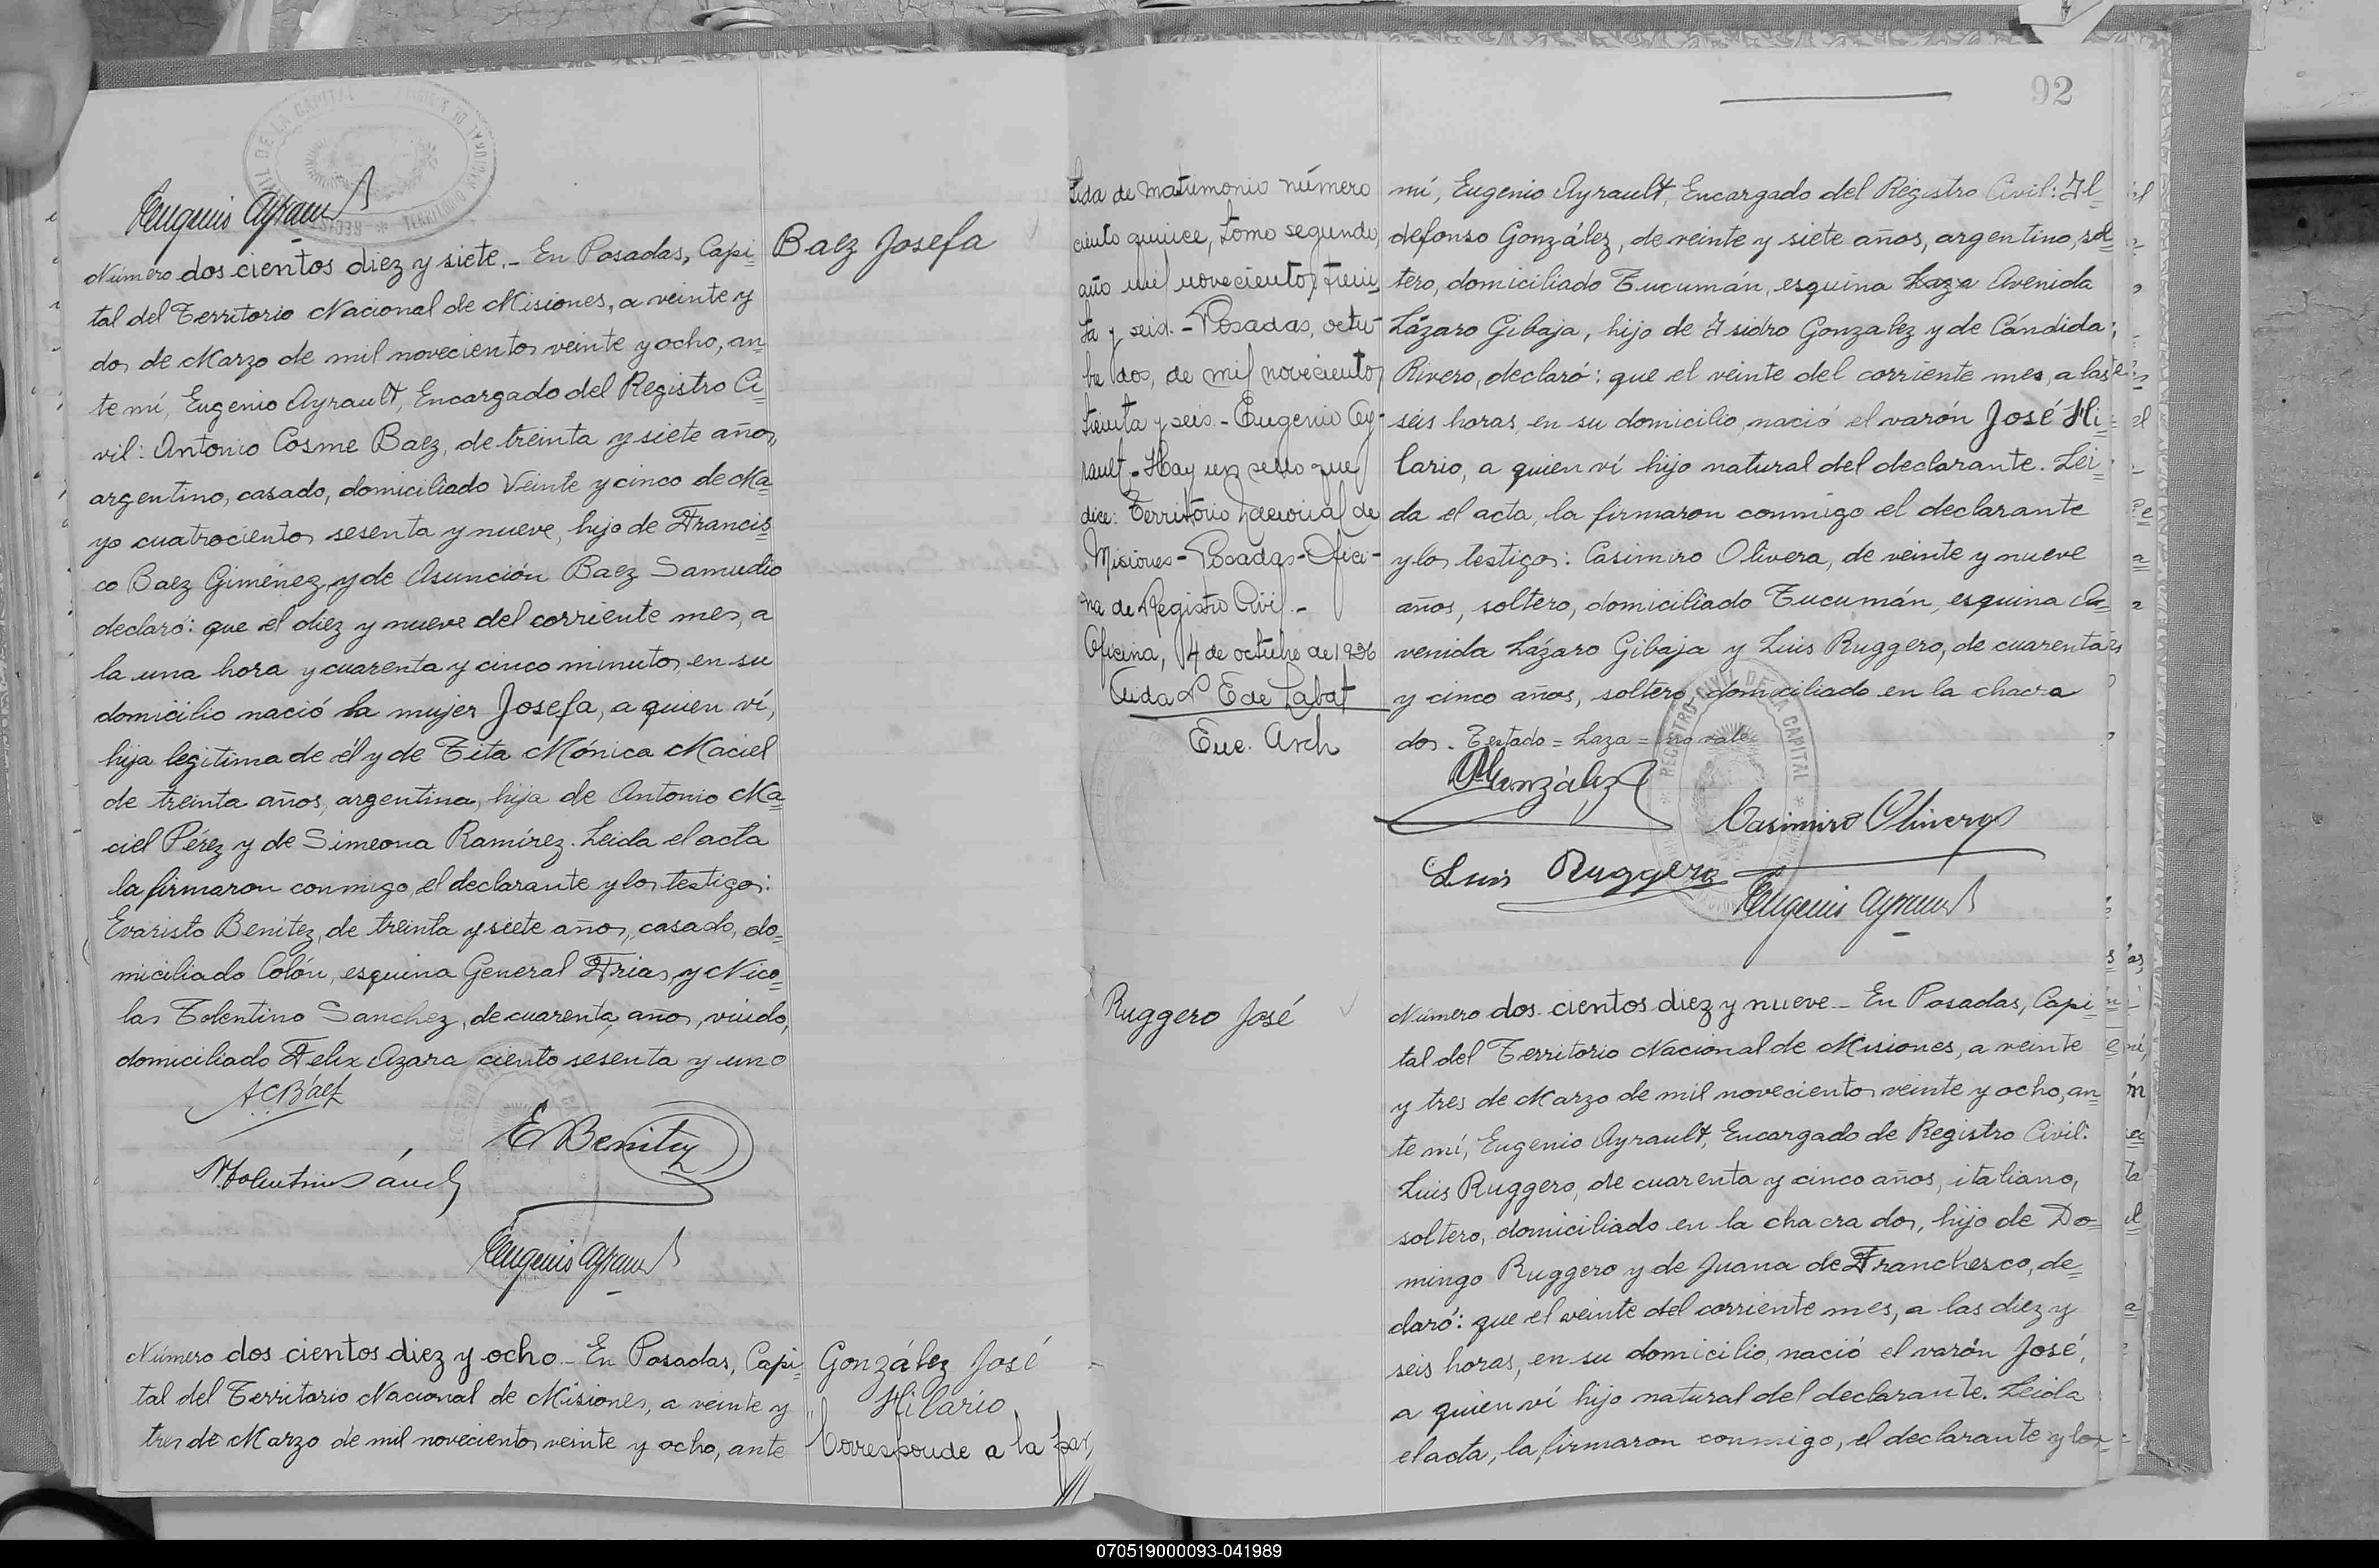 Eugenio Ayrault
Número dos cientos diez y siete.- En Posadas, Capi=
tal del Territorio Nacional de Misiones, a veinte y
dos de Marzo de mil novecientos veinte y ocho, an=
te mí, Eugenio Ayrault, Encargado del Registro Ci=
vil: Antonio Cosme Baez, de treinta y siete años,
argentino, casado, domiciliado Veinte y cinco de Ma=
yo cuatrocientos sesenta y nueve, hijo de Francis=
co Baez Giménez y de Asunción Baez Samudio
declaró: que el diez y nueve del corriente mes, a
la una hora y cuarenta y cinco minutos, en su
domicilio nació la mujer Josefa, a quien ví,
hija legitima de él y de Tita Mónica Maciel
de treinta años, argentina, hija de Antonio Ma=
ciel Pérez y de Simeona Ramírez. Leida el acta
la firmaron conmigo, el declarante y los testigos:
Evaristo Benítez, de treinta y siete años, casado, do=
miciliado Colón, esquina General Frias, y Nico=
las Tolentino Sanchez, de cuarenta años, viudo,
domiciliado Felix Azara ciento sesenta y uno
A C Báez
E Benitez
N Tolentino Sánch
Eugenio Ayrault
Número dos cientos diez y ocho.- En Posadas, Capi=
tal del Territorio Nacional de Misiones, a veinte y
tres de Marzo de mil novecientos veinte y ocho, ante
Baez Josefa
González José
Hilario
Corresponde a la par,
92
tida de matrimonio número
ciento quince, tomo segundo,
año mil novecientos trein=
ta y seis.- Posadas, octu-
bre dos, de mil novecientos
treinta y seis.- Eugenio Ay-
rault.- Hay un sello que
dice: Territorio Nacional de
Misiones - Posadas - Ofici-
na de Registro Civil.-
Oficina, 14 de octubre de 1936
E de Labat
Enc. Arch
mí, Eugenio Ayrault, Encargado del Registro Civil: Il=
defonso González, de veinte y siete años, argentino, sol=
tero, domiciliado Tucumán, esquina Laza Avenida
Lázaro Gibaja, hijo de Isidro Gonzalez y de Cándida
Rivero, declaró: que el veinte del corriente mes, a las
seis horas, en su domicilio, nació el varón José Hi=
lario, a quien ví hijo natural del declarante. Lei=
da el acta, la firmaron conmigo el declarante
y los testigos: Casimiro Olivera, de veinte y nueve
años, soltero, domiciliado Tucumán, esquina A=
venida Lázaro Gibaja y Luis Ruggero, de cuarenta
y cinco años, soltero, domiciliado en la chacra
dos. Testado = Laza = no vale
González
Casimiro Olivera
Luis Ruggero
Eugenio Ayrault
REGISTRO CIVIL DE LA CAPITAL
Ruggero José
Número dos cientos diez y nueve.- En Posadas, Capi=
tal del Territorio Nacional de Misiones, a veinte
y tres de Marzo de mil novecientos veinte y ocho, an=
te mí, Eugenio Ayrault, Encargado de Registro Civil:
Luis Ruggero, de cuarenta y cinco años, italiano,
soltero, domiciliado en la chacra dos, hijo de Do=
mingo Ruggero y de Juana de Franchesco, de=
claró: que el veinte del corriente mes, a las diez y
seis horas, en su domicilio, nació el varón José,
a quien ví hijo natural del declarante. Leida
el acta, la firmaron conmigo, el declarante y los
070519000093-041989